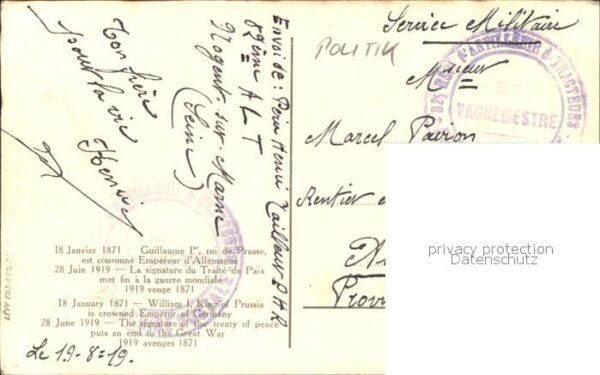 Service Militaire
POLITIK
Msieur
LE
VAGUEMESTRE
D'ARTILLERIE A TRACTEURS
Marcel
Rentier
Prov
privacy protection
Datenschutz
Envoi de : Henri
82ème A L T
Nogent-sur-Marne
(Seine)
Ton frère
pour la vie
Henri
18 Janvier 1871 - Guillaume Ier, roi de Prusse,
est couronné Empereur d'Allemagne
28 Juin 1919 — La signature du Traité de Paix
met fin à la guerre mondiale
1919 venge 1871
18 January 1871 - William I, King of Prussia
is crowned Emperor of Germany
28 June 1919 — The signature of the treaty of peace
puts an end to the Great War
1919 avenges 1871
Le 19-8-19.